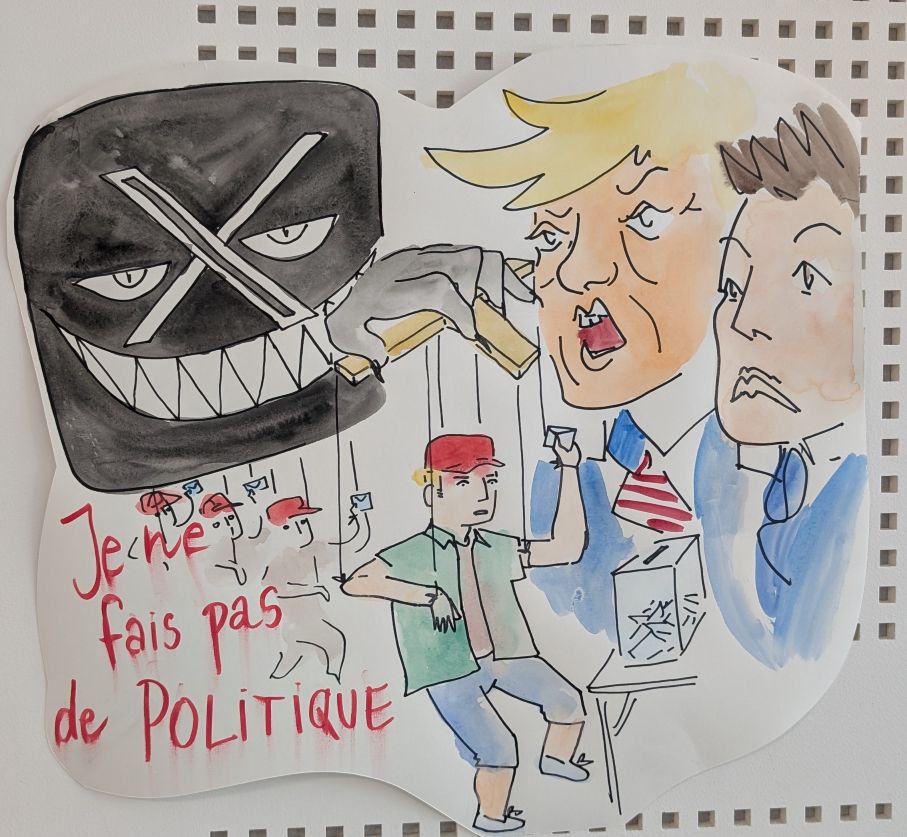 X
Je ne
fais pas
de POLITIQUE